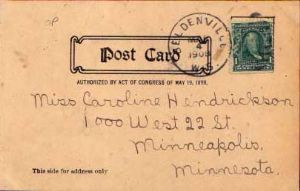 BELDENVILLE
2
W
Post Card
AUTHORIZED BY ACT OF CONGRESS OF MAY 19, 1898.
Miss Caroline Hendrickson
1000 West 22 St.
Minneapolis,
Minnesota.
This side for address only